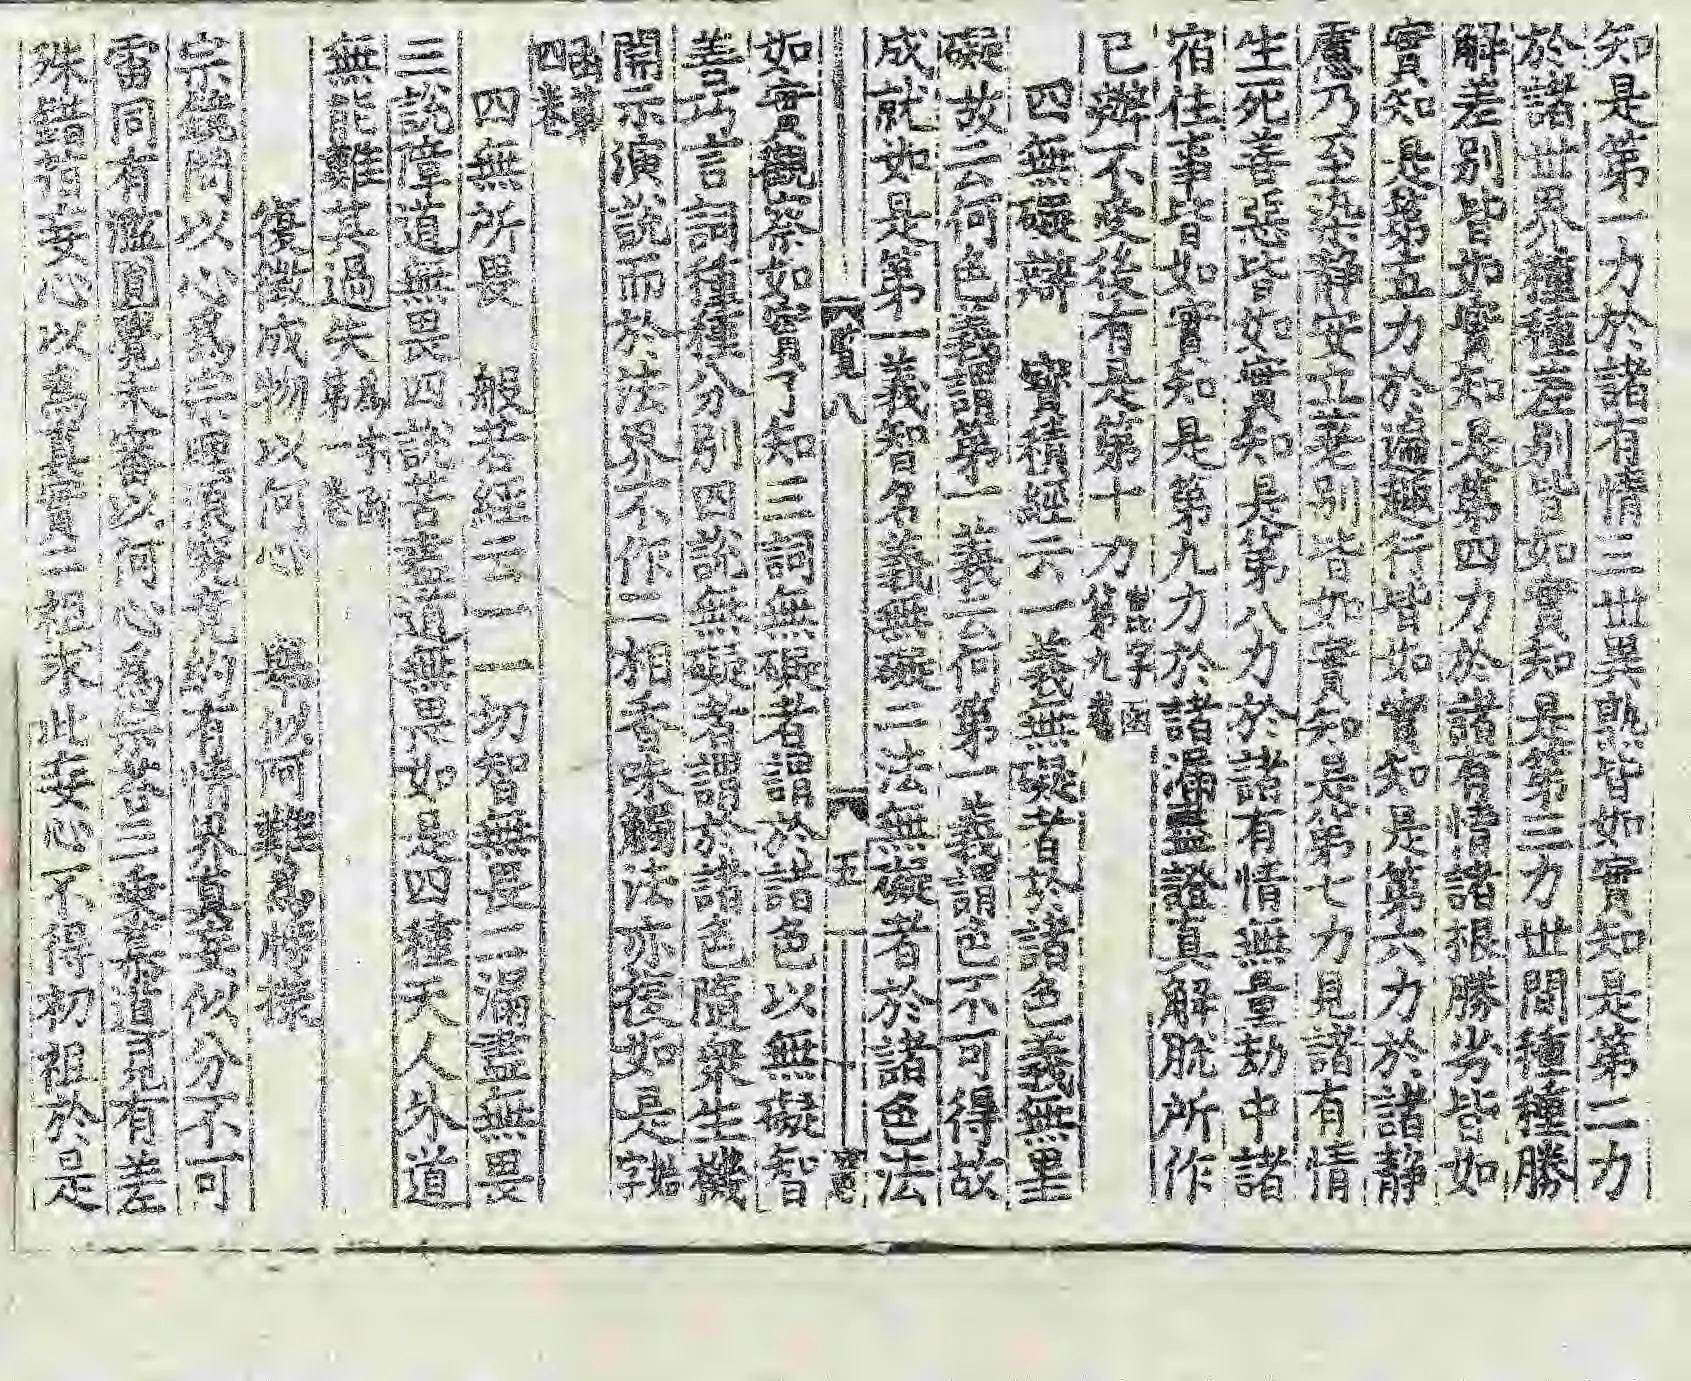 知是第一力於諸有情三世異熟皆如實知是第二力
於諸世界種種差別皆如實知是第三力世間種種勝
解差別皆如實知是第四力於諸有情諸根勝劣皆如
實知是第五力於遍趣行皆如實知是第六力於諸靜
慮乃至染靜安立差別皆如實知是第七力見諸有情
生死善惡皆如實知是第八力於諸有情無量劫中諸
宿住事皆如實知是第九力於諸漏盡證真解脫所作
已辦不受後有是第十力
崑字函
第九卷
四無礙辯　寶積經云一義無礙者於諸色義無罣
礙故云何色義謂第一義云何第一義謂色不可得故
成就如是第一義智名義無礙二法無礙者於諸色法
八　五
如實觀察如實了知三詞無礙者謂於諸色以無礙智
善巧言詞種種分別四說無礙者謂於諸色隨眾生機
開示演說而於法界不作二相香味觸法亦復如是
字
函第
四卷
四無所畏　般若經云一一切智無畏二漏盡無畏
三說障道無畏四說苦盡道無畏如是四種天人外道
無能難其過失
函
第一卷
復徵成物以何心　難為
宗鏡問以心為宗理須究竟約有情界真妄似分不可
雷同有濫圓覺未審以何心為宗答三乘有差
殊錯指妄心以為真實二祖求此妄心不得初祖於是